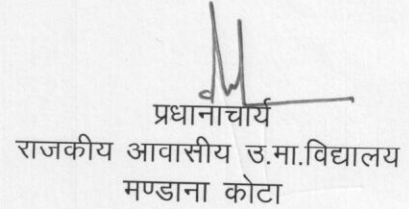 प्रधानाचार्य
राजकीय आवासीय उ.मा.विद्यालय
मण्डाना कोटा